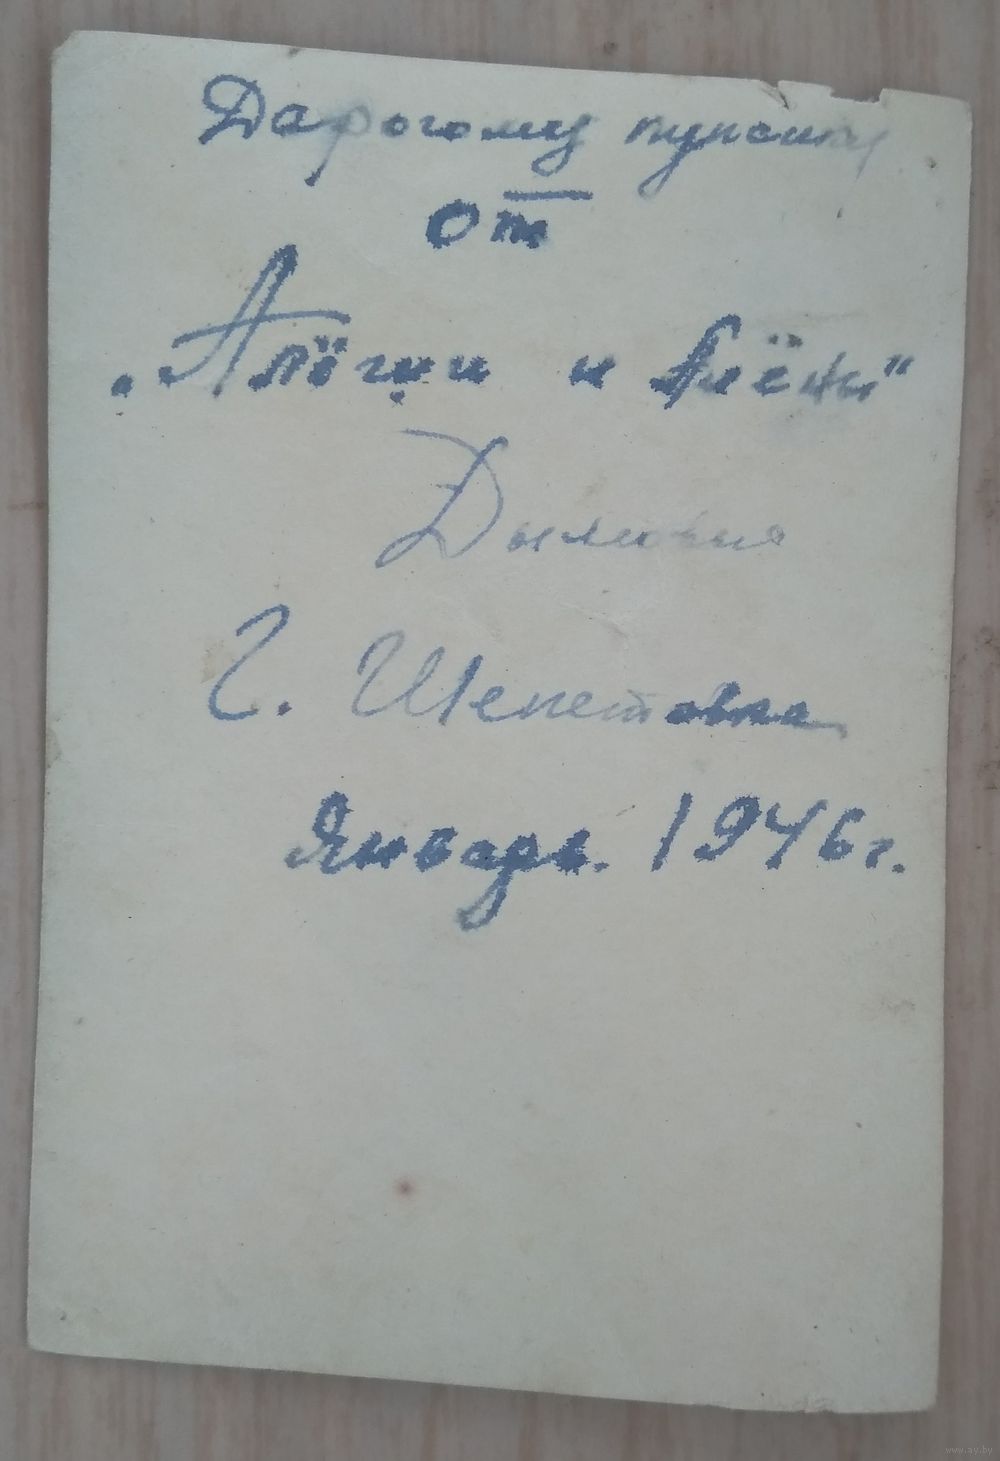 Дарогому пупсику
от
„Алёши и Алёны"
Г. Шепетовка
Январь. 1946 г.
www.ay.by